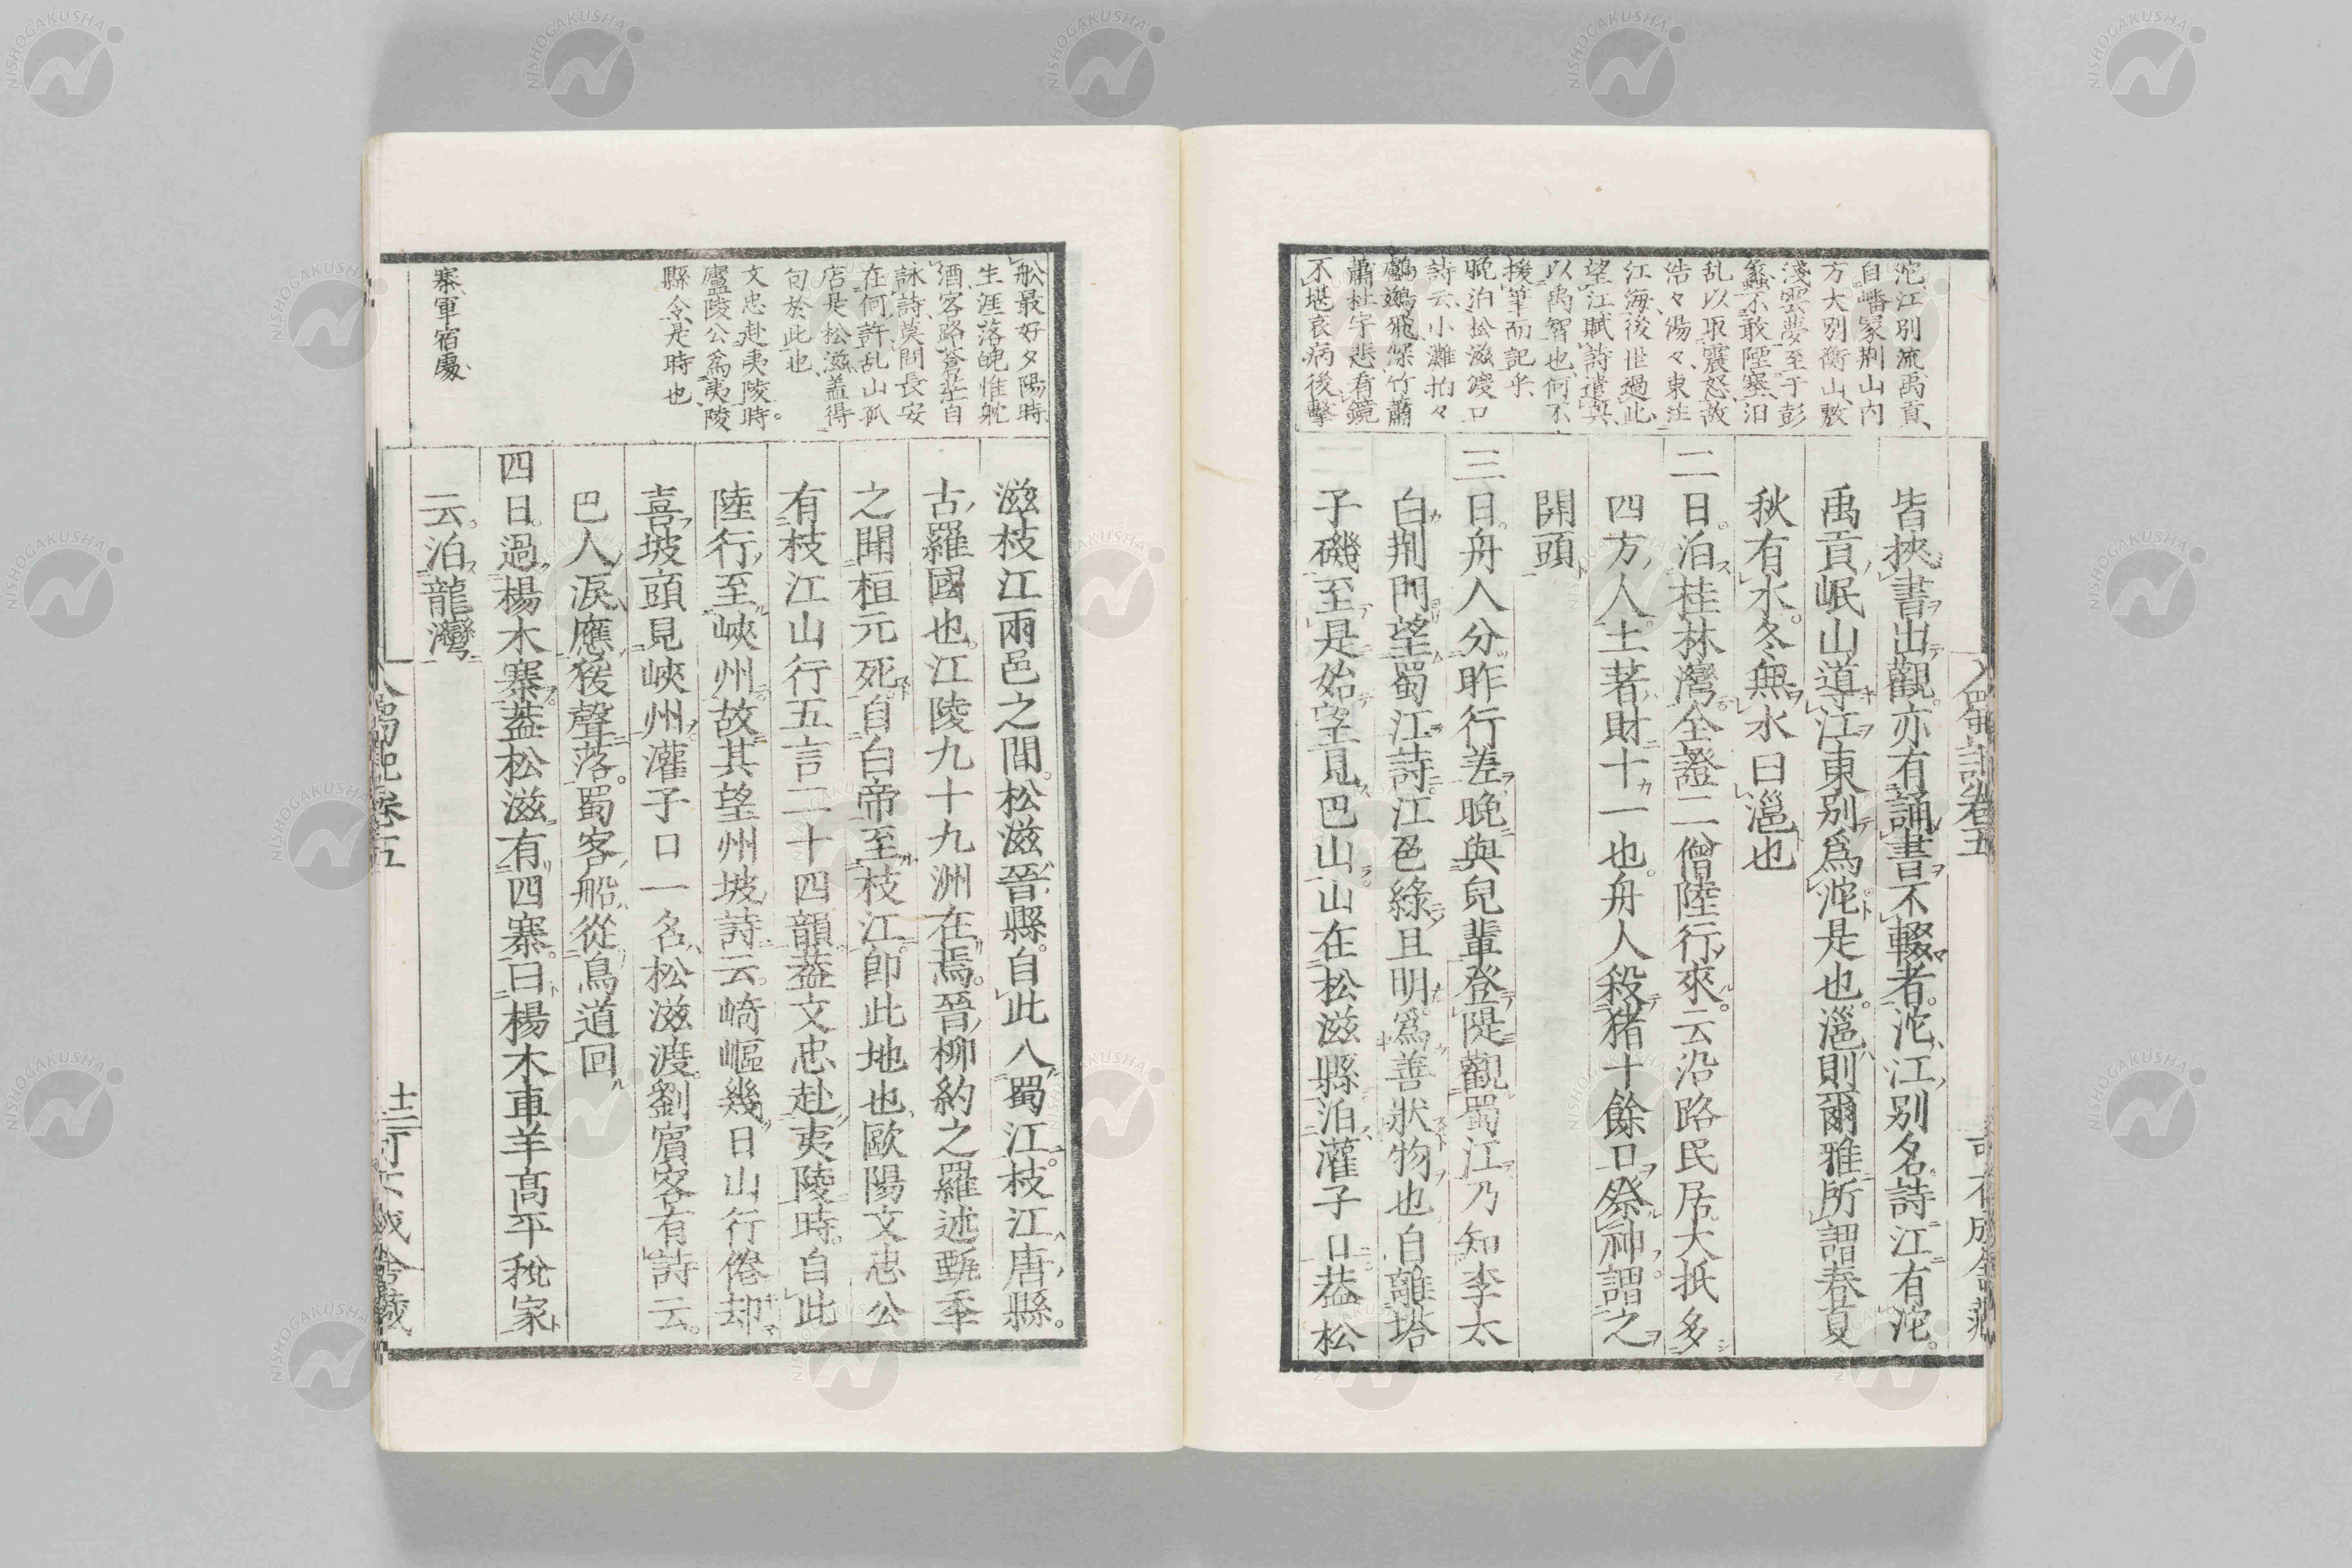 沱江別流禹貢、
自嶓冢荆山内
方大別衡山、敷
淺雲夢至于彭
蠡不敢陻塞、汨
乱以取震怒、故
浩々湯々、東注
江海、後世過此、
望江賦詩遣興、
以禹智也、何不
援筆而記乎、
晩泊松滋渡口
詩云、小灘拍々
鸕鷀飛、深竹蕭
蕭杜宇悲、看鏡
不堪哀病後、擊
皆挾書出觀。亦有誦書不輟者。沱、江別名。詩江有沱。
禹貢岷山導江東別爲沱是也。灉則爾雅所謂春夏
秋有水。冬無水曰灉也
二日。泊桂林灣。全證二僧陸行來。云沿路民居大抵多
四方人。土著財十一也。舟人殺猪十餘口祭神。謂之
開頭
三日。舟人分昨行差。晩與兒輩登隄觀蜀江。乃知李太
白荆門望蜀江詩。江色綠且明。爲善狀物也。自離塔
子磯至是始望見巴山。山在松滋縣。泊灌子口。蓋松
入蜀記卷五
NISHOGAKUSHA
舩最好夕陽時、
生涯落魄惟躭
酒、客路蒼茫自
詠詩、莫問長安
在何許、乱山孤
店是松滋、蓋得
句於此也、
文忠赴夷陵時。
廬陵公爲夷陵
縣令、是時也
寨軍宿處、
滋枝江兩邑之間。松滋晉縣。自此入蜀江。枝江唐縣。
古羅國也。江陵九十九洲在焉。晉柳約之羅述甄季
之聞桓元死。自白帝至枝江。卽此地也。歐陽文忠公
有枝江山行五言二十四韻。蓋文忠赴夷陵時。自此
陸行至峽州。故其望州坡詩云。崎嶇幾日山行倦。却
喜坡頭見峽州。灌子口一名松滋渡。劉賓客有詩云。
巴人淚應猨聲落。蜀客船從鳥道回
四日。過楊木寨。蓋松滋有四寨。曰楊木車羊高平稅家
云。泊龍灣